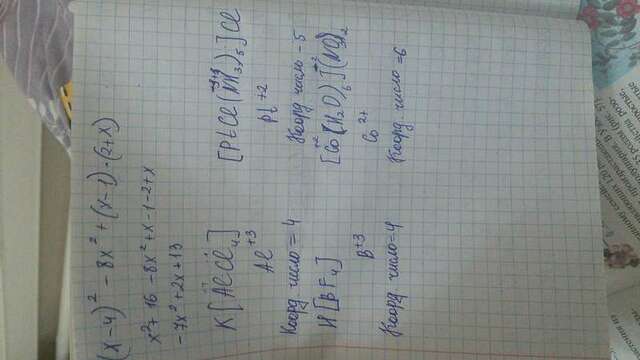 (x-4)² - 8x² + (x-1)·(2+x)
x² + 16 - 8x² + x - 1 - 2 + x
-7x² + 2x + 13
K[AlCl₄]
Al⁺³
Коорд число = 4
H[BF₄]
B⁺³
Коорд число = 4
[PtCl(NH₃)₅]Cl
Pt⁺²
Коорд число - 5
[Co(H₂O)₆](NO₃)₂
Co²⁺
Коорд. число = 6